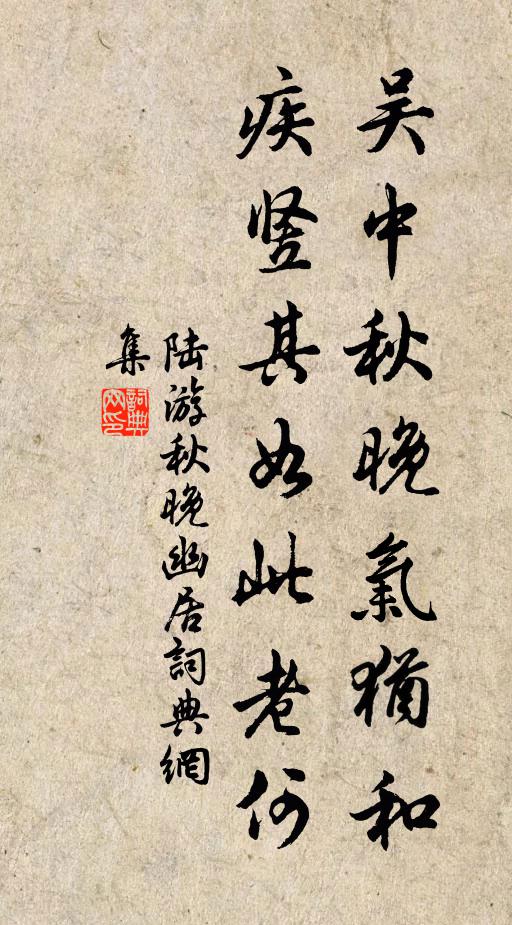 吳中秋晚氣猶和
疾豎其如此老何
陸游秋晚幽居詞典網
集
詞典
网印